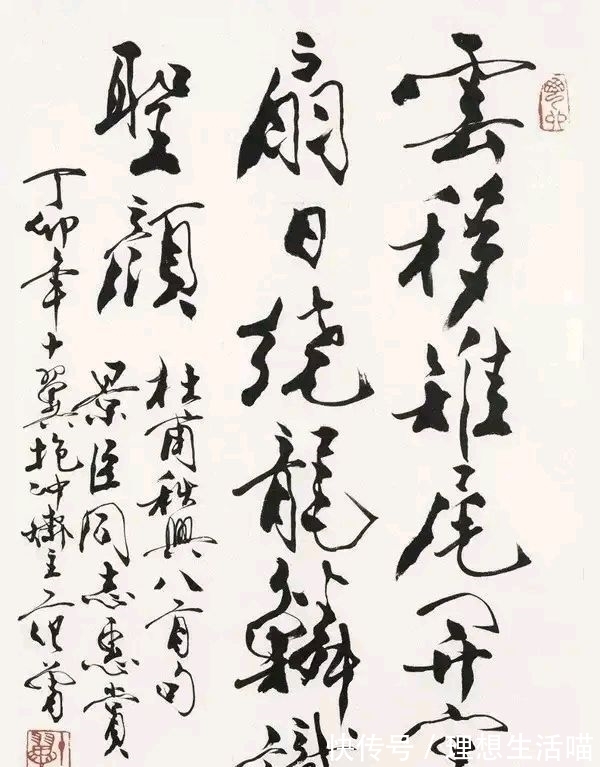 雲移雉尾開宮
扇日繞龍鱗識
聖顏
杜甫秋興八首句
景臣同志惠賞
丁卯年十翼抱沖齋主范曾
快传号/理想生活喵